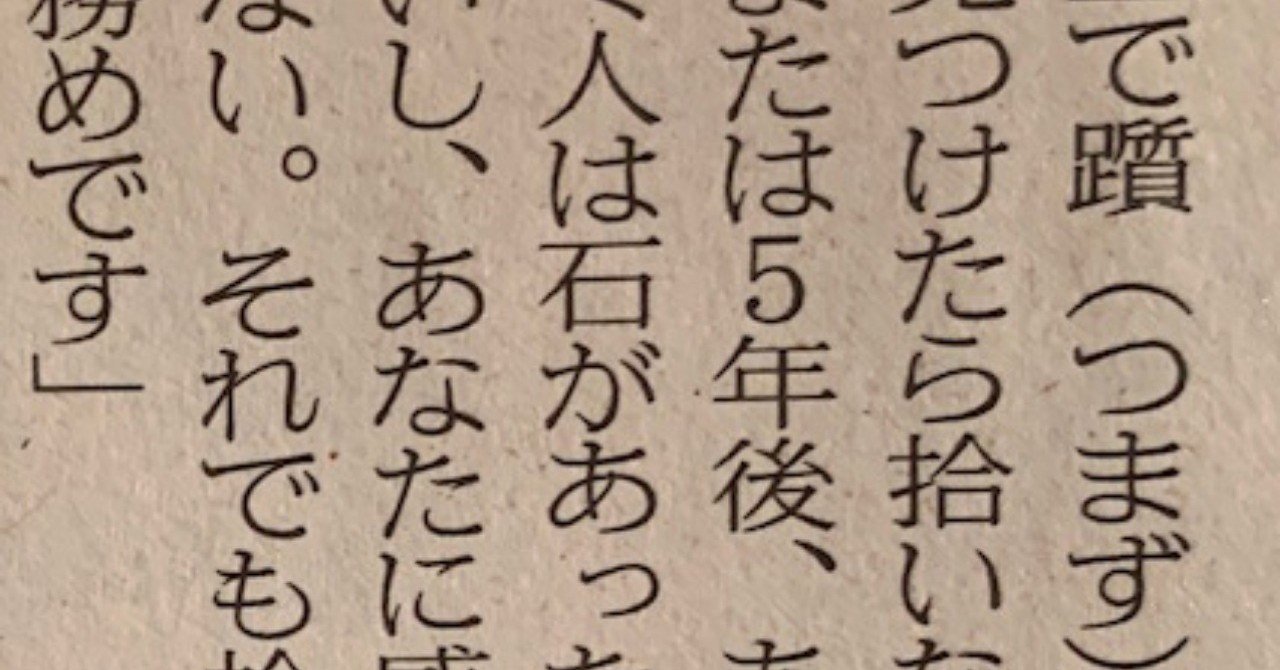 で躓（つまず）
つけたら拾い
たは5年後、
人は石があっ
し、あなたに
ない。それでも
務めです」